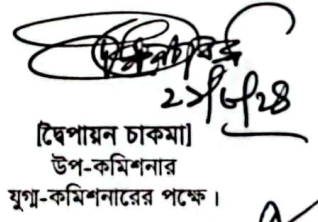 [দ্বৈপায়ন চাকমা]
উপ-কমিশনার
যুগ্ম-কমিশনারের পক্ষে।